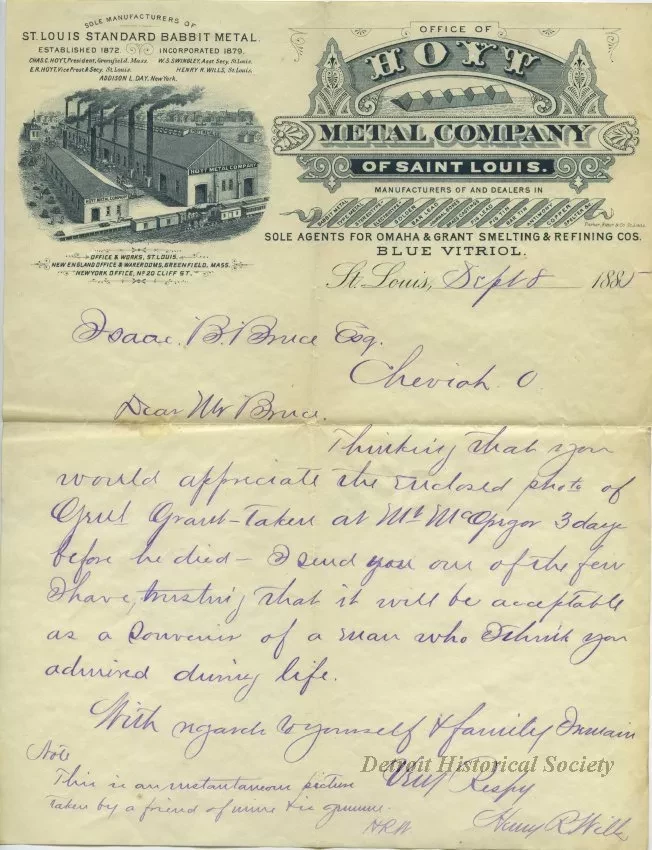 SOLE MANUFACTURERS OF
ST. LOUIS STANDARD BABBIT METAL.
ESTABLISHED 1872. INCORPORATED 1879.
CHAS. C. HOYT, President, Greenfield, Mass. W.S. SWINGLEY, Asst. Secy. St. Louis.
E.R. HOYT, Vice Prest. & Secy. St. Louis. HENRY R. WILLS, St. Louis.
ADDISON L. DAY, New York.
HOYT METAL COMPANY
HOYT METAL COMPANY
OFFICE & WORKS, ST. LOUIS.
NEW ENGLAND OFFICE & WAREROOMS, GREENFIELD, MASS.
NEW YORK OFFICE, No 20 CLIFF ST.
OFFICE OF
HOYT
METAL COMPANY
OF SAINT LOUIS.
MANUFACTURERS OF AND DEALERS IN
SOLE AGENTS FOR OMAHA & GRANT SMELTING & REFINING COS.
BLUE VITRIOL.
St. Louis, Sept 8 1885
Isaac. B. Bruce Esq.
Cheviot. O
Dear Mr Bruce.
Thinking that you
would appreciate the enclosed photo of
Genl Grant - Taken at Mt McGregor 3 days
before he died - I send you one of the few
I have, trusting that it will be acceptable
as a Souvenir of a man who I think you
admired during life.
With regards to yourself & family I remain
Very Respy
Henry R. Wills
Note
This is an instantaneous picture
taken by a friend of mine &
HRW
Detroit Historical Society